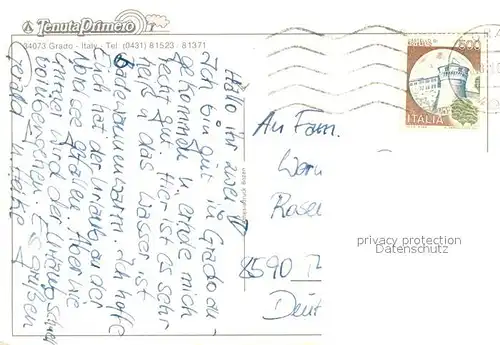 Tenuta Primero
34073 Grado - Italy - Tel (0431) 81523 - 81371
Hallo ihr zwei
Ich bin gut in Grado an-
gekommen u. erhole mich
recht gut. Hier ist es sehr
heiß u. das Wasser ist
Badewannenwarm. Ich hoffe
Euch hat der Urlaub an der
Nordsee gefallen. Aber wie
immer wird der Urlaub schnell
vorbeigehen. Es grüßen
Gerald u. Heike
An Fam.
Wern
Rosen
8590
Deut
500
ITALIA
privacy protection
Datenschutz